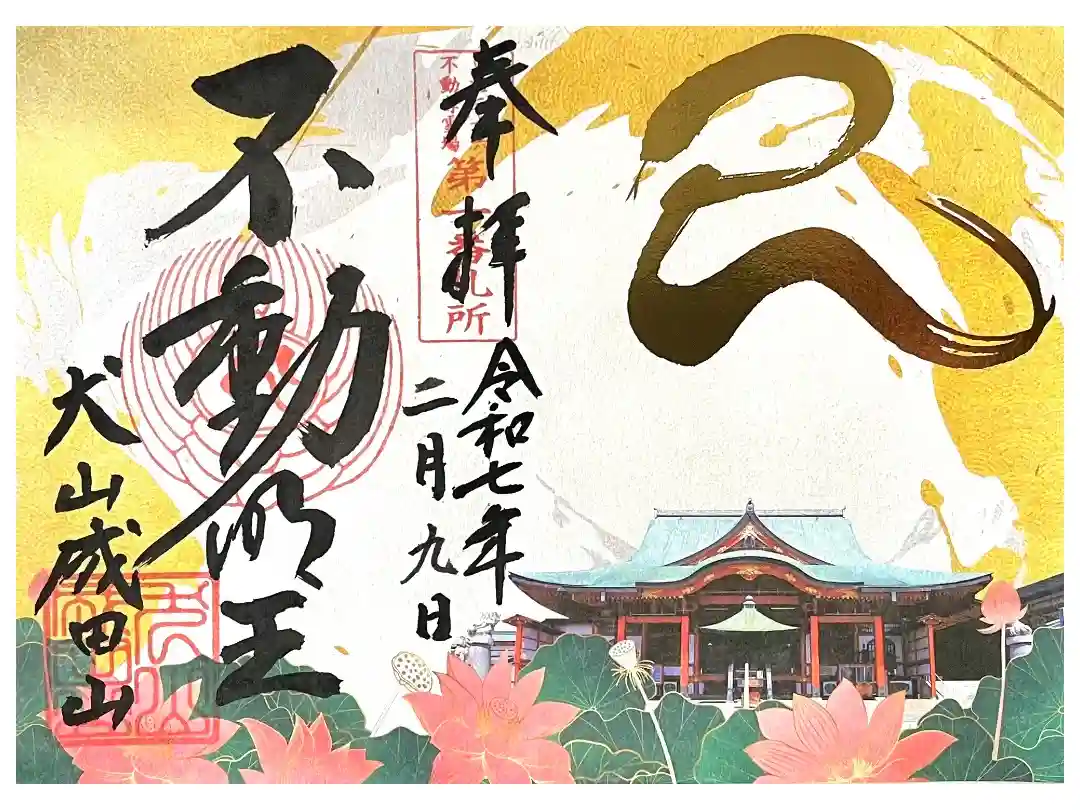 奉拝
令和七年
二月九日
不動尊霊場
第一番札所
不動明王
犬山成田山